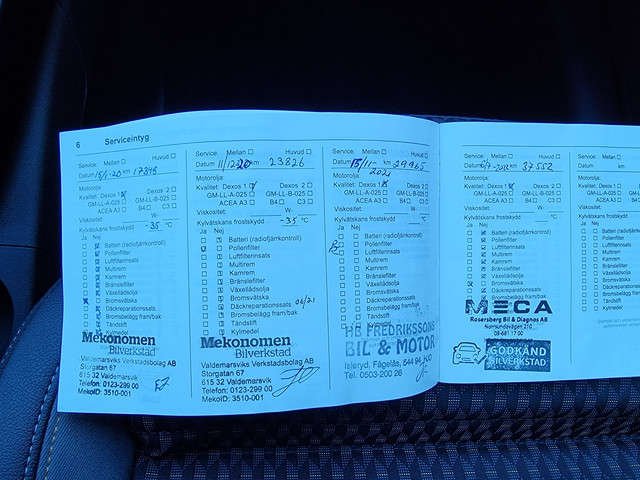 6 Serviceintyg
Service: Mellan Huvud
Datum 15/1-20 km 17345
Motorolja:
Kvalitet: Dexos 1 Dexos 2
GM-LL-A-025 GM-LL-B-025
ACEA A3 B4 C3
Viskositet: W-
Kylvätskans frostskydd -35 °C
Ja Nej
Batteri (radiofjärrkontroll)
Pollenfilter
Luftfilterinsats
Multirem
Kamrem
Bränslefilter
Växellådsolja
Bromsvätska
Däckreparationssats
Bromsbelägg fram/bak
Tändstift
Kylmedel
Mekonomen
Bilverkstad
Valdemarsviks Verkstadsbolag AB
Storgatan 67
615 32 Valdemarsvik
Telefon: 0123-299 00
MekoID: 3510-001
Service: Mellan Huvud
Datum 11/12-20 km 23826
Motorolja:
Kvalitet: Dexos 1 Dexos 2
GM-LL-A-025 GM-LL-B-025
ACEA A3 B4 C3
Viskositet: W-
Kylvätskans frostskydd -35 °C
Ja Nej
Batteri (radiofjärrkontroll)
Pollenfilter
Luftfilterinsats
Multirem
Kamrem
Bränslefilter
Växellådsolja
Bromsvätska
Däckreparationssats 06/21
Bromsbelägg fram/bak
Tändstift
Kylmedel
Mekonomen
Bilverkstad
Valdemarsviks Verkstadsbolag AB
Storgatan 67
615 32 Valdemarsvik
Telefon: 0123-299 00
MekoID: 3510-001
Service: Mellan Huvud
Datum 15/11- km 29965
2021
Motorolja:
Kvalitet: Dexos 1 Dexos 2
GM-LL-A-025 GM-LL-B-025
ACEA A3 B4 C3
Viskositet: W-
Kylvätskans frostskydd °C
Ja Nej
Batteri (radiofjärrkontroll)
Pollenfilter
Luftfilterinsats
Multirem
Kamrem
Bränslefilter
Växellådsolja
Bromsvätska
Däckreparationssats
Bromsbelägg fram/bak
Tändstift
HB FREDRIKSSONS
BIL & MOTOR
Isleryd, Fågelås, 544 94 HJO
Tel. 0503-200 26
Service: Mellan Huvud
Datum km 37552
Motorolja:
Kvalitet: Dexos 1 Dexos 2
GM-LL-A-025 GM-LL-B-025
ACEA A3 B4 C3
Viskositet: W-
Kylvätskans frostskydd °C
Ja Nej
Batteri (radiofjärrkontroll)
Pollenfilter
Luftfilterinsats
Multirem
Kamrem
Bränslefilter
Växellådsolja
Bromsvätska
Däckreparationssats
Bromsbelägg fram/bak
MECA
Rosersberg Bil & Diagnos AB
Norrsundavägen 210
08-681 17 00
GODKÄND
BILVERKSTAD
Service: Mellan
Datum km
Motorolja:
Kvalitet: Dexos 1
GM-LL-A-025
ACEA A3
Viskositet:
Kylvätskans frostskydd
Ja Nej
Batteri
Pollenfilter
Luftfilterinsats
Multirem
Kamrem
Bränslefilter
Växellådsolja
Bromsvätska
Däckreparationssats
Bromsbelägg
Tändstift
Kylmedel